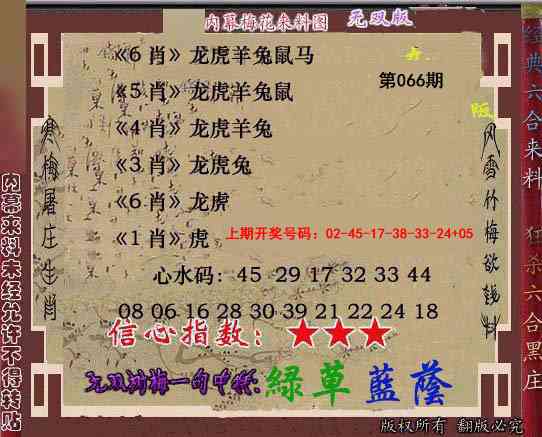 内幕梅花来料图 无双版
《6 肖》龙虎羊兔鼠马
第066期
《5 肖》龙虎羊兔鼠
《4 肖》龙虎羊兔
《3 肖》龙虎兔
《6 肖》龙虎
《1 肖》虎
上期开奖号码：02-45-17-38-33-24+05
心水码：45 29 17 32 33 44
08 06 16 28 30 39 21 22 24 18
信心指数：★★★
无双
梅一句中特:綠草藍蔭
寒梅屠庄生肖
风雪竹梅欲钱料
内幕来料未经允许不得转贴
经典六合来料 狂杀六合黑庄
版权所有 翻版必究